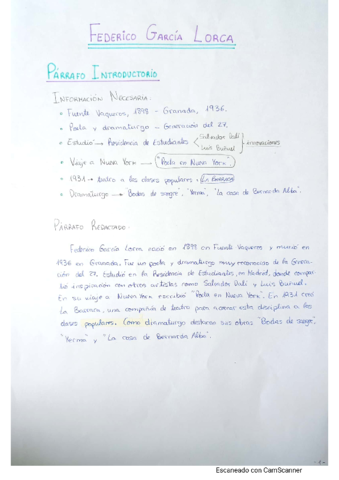 FEDERICO GARCÍA LORCA
PÁRRAFO INTRODUCTORIO
INFORMACIÓN NECESARIA
• Fuente Vaqueros, 1898 - Granada, 1936.
• Poeta y dramaturgo - Generación del 27.
• Estudió → Residencia de Estudiantes Salvador Dalí
Luis Buñuel
• Viaje a Nueva York → "Poeta en Nueva York"
• 1931 → teatro a las clases populares → La Barraca
• Dramaturgo → Bodas de sangre", "Yerma", "La casa de Bernarda Alba".
PÁRRAFO REDACTADO
Federico García Lorca nació en 1898 en Fuente Vaqueros y murió en
1936 en Granada. Fue un poeta y dramaturgo muy reconocido de la Genera-
ción del 27. Estudió en la Residencia de Estudiantes, en Madrid, donde compar-
tió inspiración con otros artistas como Salvador Dalí y Luis Buñuel.
En su viaje a Nueva York escribió "Poeta en Nueva York". En 1931 creó
La Barraca, una compañía de teatro para acercar esta disciplina a las
clases populares. Como dramaturgo destacan sus obras "Bodas de sangre",
"Yerma" y "La casa de Bernarda Alba".
- 1 -
Escaneado con CamScanner